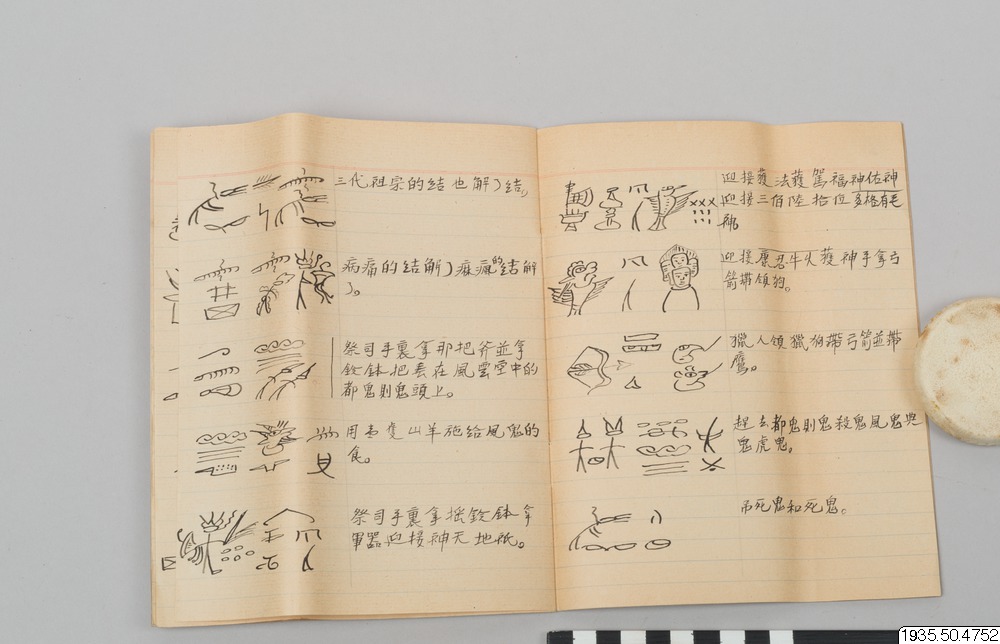 三代祖宗的結也解了結。
病痛的結解了痲瘋的結解
了。
祭司手裏拿那把斧並拿
鈸鉢把 在風雲空中的
都鬼則鬼頭上。
用 隻山羊施給風鬼的
食。
祭司手裏拿搖鈸鉢拿
軍器迎接神天地祇。
迎接護法護篤福神佑神
迎接三佰陸拾位多格有毛
神。
迎接 牛火護神手拿弓
箭帶領狗。
獵人領獵狗帶弓箭並帶
鷹。
趕去都鬼則鬼殺鬼風鬼與
鬼虎鬼。
吊死鬼和死鬼。
1935.50.4752